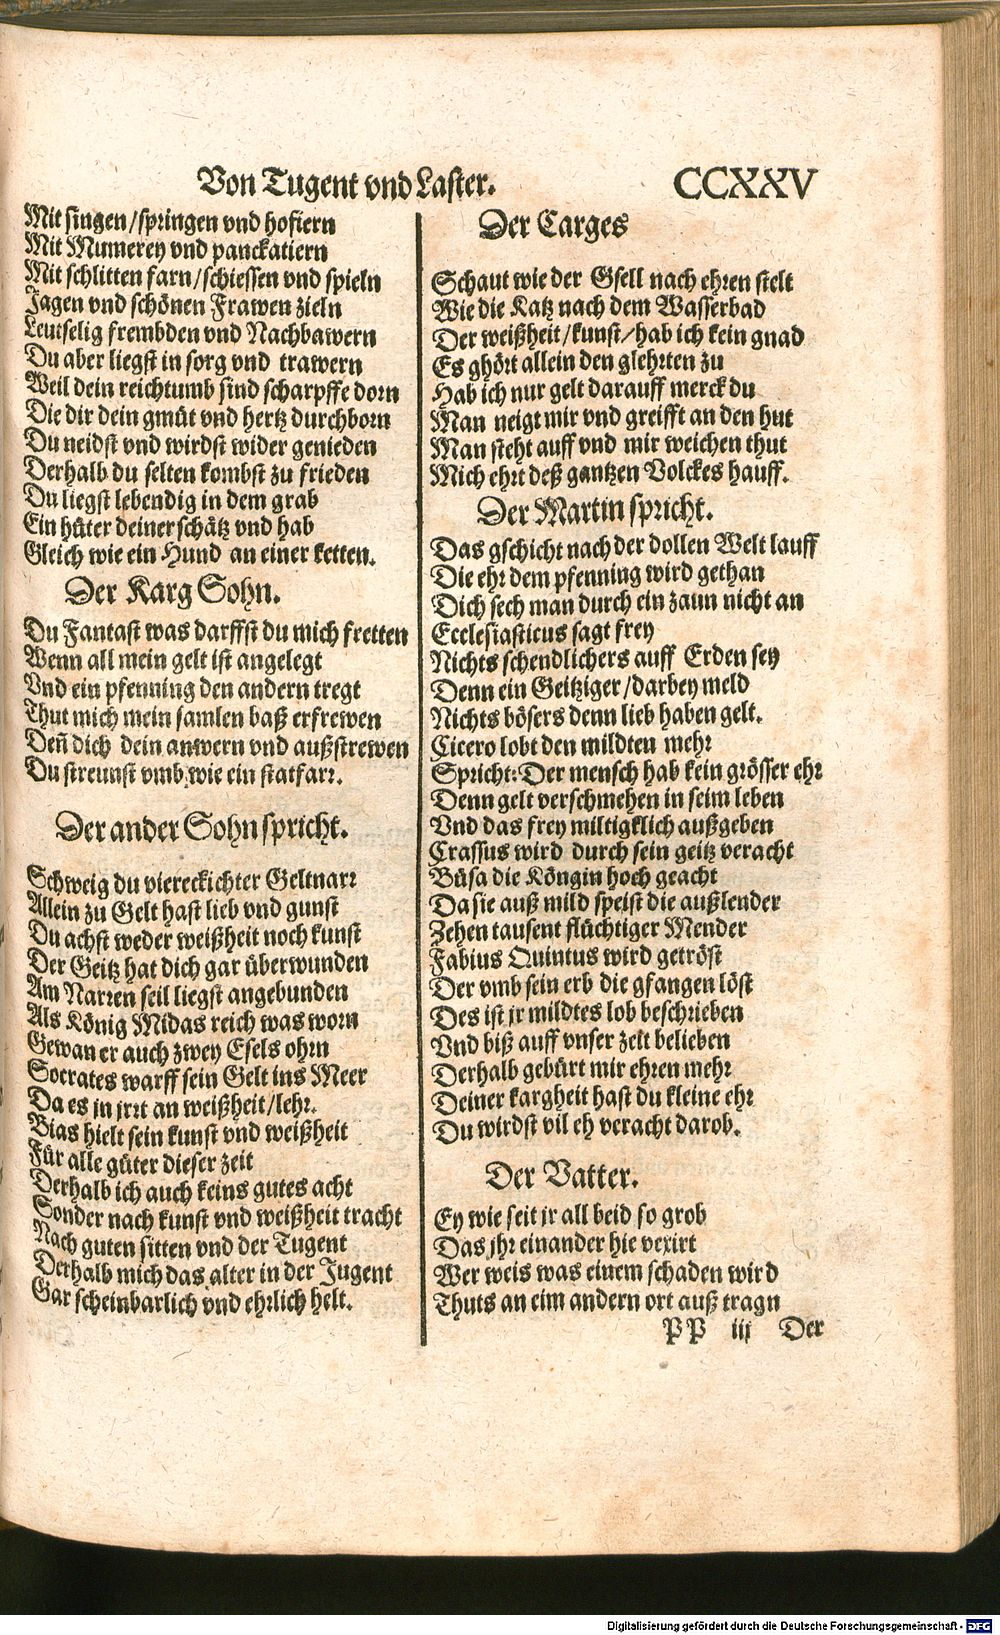 Von Tugent vnd Laster. CCXXV
Mit singen/springen vnd hofiern
Mit Mumerey vnd panckatiern
Mit schlitten farn/schiessen vnd spieln
Jagen vnd schönen Frawen zieln
Leutselig frembden vnd Nachbawern
Du aber liegst in sorg vnd trawern
Weil dein reichtumb sind scharpffe dorn
Die dir dein gmüt vnd hertz durchborn
Du neidst vnd wirdst wider genieden
Derhalb du selten kombst zu frieden
Du liegst lebendig in dem grab
Ein hüter deiner schätz vnd hab
Gleich wie ein Hund an einer ketten.
Der Karg Sohn.
Du Fantast was darffst du mich fretten
Wenn all mein gelt ist angelegt
Vnd ein pfenning den andern tregt
Thut mich mein samlen baß erfrewen
Deñ dich dein anwern vnd außstrewen
Du streunst vmb wie ein statfarr.
Der ander Sohn spricht.
Schweig du viereckichter Geltnarr
Allein zu Gelt hast lieb vnd gunst
Du achst weder weißheit noch kunst
Der Geitz hat dich gar überwunden
Am Narren seil liegst angebunden
Als König Midas reich was worn
Gewan er auch zwey Esels ohrn
Socrates warff sein Gelt ins Meer
Da es jn jrrt an weißheit/lehr.
Bias hielt sein kunst vnd weißheit
Für alle güter dieser zeit
Derhalb ich auch keins gutes acht
Sonder nach kunst vnd weißheit tracht
Nach guten sitten vnd der Tugent
Derhalb mich das alter in der Jugent
Gar scheinbarlich vnd ehrlich helt.
Der Carges
Schaut wie der Gsell nach ehren stelt
Wie die Katz nach dem Wasserbad
Der weißheit/kunst/hab ich kein gnad
Es ghört allein den glehrten zu
Hab ich nur gelt darauff merck du
Man neigt mir vnd greifft an den hut
Man steht auff vnd mir weichen thut
Mich ehrt deß gantzen Volckes hauff.
Der Martin spricht.
Das gschicht nach der dollen Welt lauff
Die ehr dem pfenning wird gethan
Dich sech man durch ein zaun nicht an
Ecclesiasticus sagt frey
Nichts schendlichers auff Erden sey
Denn ein Geitziger/darbey meld
Nichts bösers denn lieb haben gelt.
Cicero lobt den mildten mehr
Spricht: Der mensch hab kein grösser ehr
Denn gelt verschmehen in seim leben
Vnd das frey miltigklich außgeben
Crassus wird durch sein geitz veracht
Büsa die Köngin hoch geacht
Da sie auß mild speist die außlender
Zehen tausent flüchtiger Mender
Fabius Quintus wird getröst
Der vmb sein erb die gfangen löst
Des ist jr mildtes lob beschrieben
Vnd biß auff vnser zeit belieben
Derhalb gebürt mir ehren mehr
Deiner kargheit hast du kleine ehr
Du wirdst vil eh veracht darob.
Der Vatter.
Ey wie seit jr all beid so grob
Das jhr einander hie vexirt
Wer weis was einem schaden wird
Thuts an eim andern ort auß tragn
PP iij Der
Digitalisierung gefördert durch die Deutsche Forschungsgemeinschaft - DFG